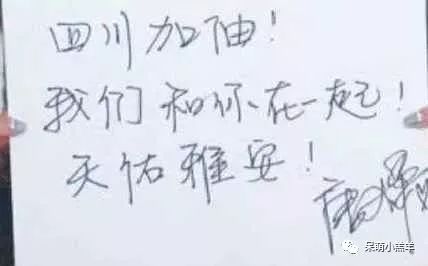 四川加油！
我们和你在一起！
天佑雅安！
呆萌小羔羊